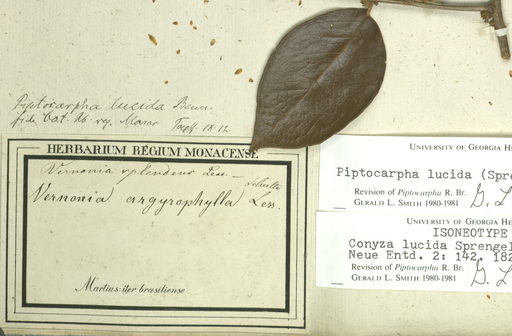 Piptocarpha lucida Benn.
fide Cat. Hb. reg. Monac.
HERBARIUM REGIUM MONACENSE
Vernonia splendens Less. —
Schultz
Vernonia argyrophylla Less.
Martius: iter brasiliense
UNIVERSITY OF GEORGIA HE
Piptocarpha lucida (Spre
Revision of Piptocarpha R. Br.
GERALD L. SMITH 1980-1981
G. L
UNIVERSITY OF GEORGIA HE
ISONEOTYPE
Conyza lucida Sprengel
Neue Entd. 2: 142. 182
Revision of Piptocarpha R. Br.
GERALD L. SMITH 1980-1981
G. L